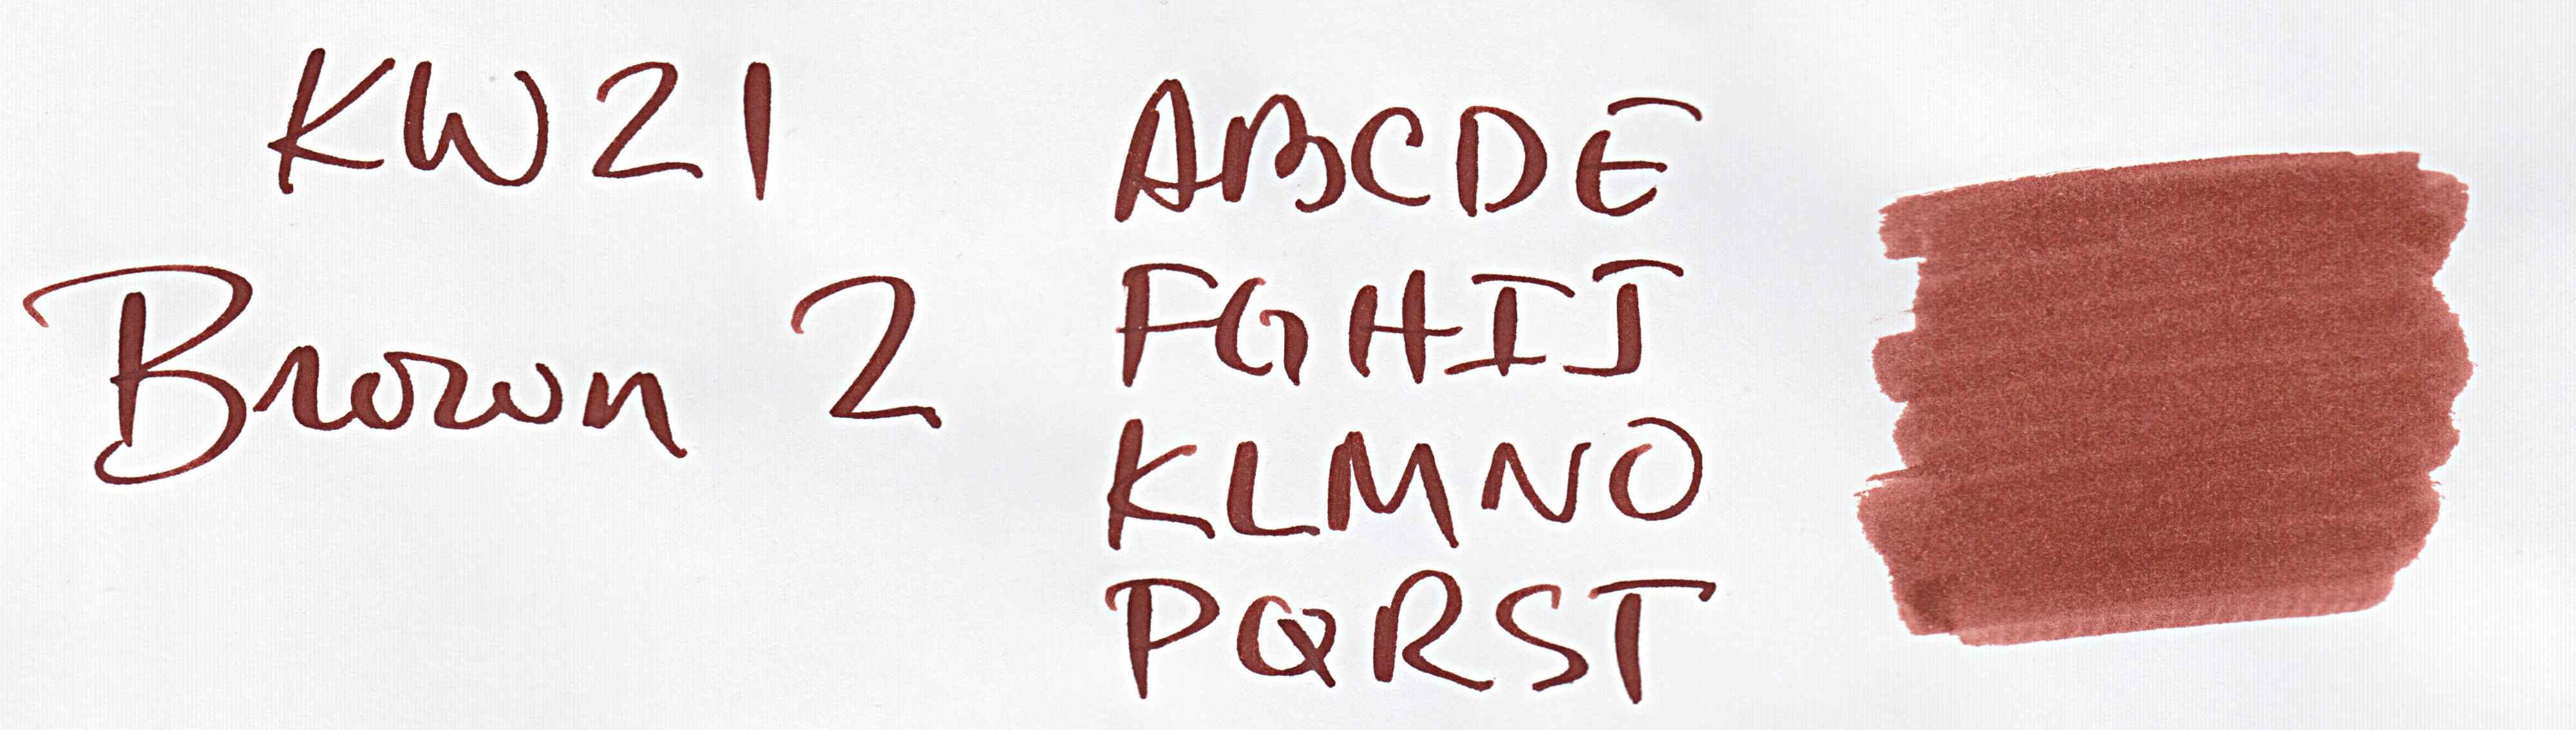 KW21
Brown 2
ABCDE
FGHIJ
KLMNO
PQRST